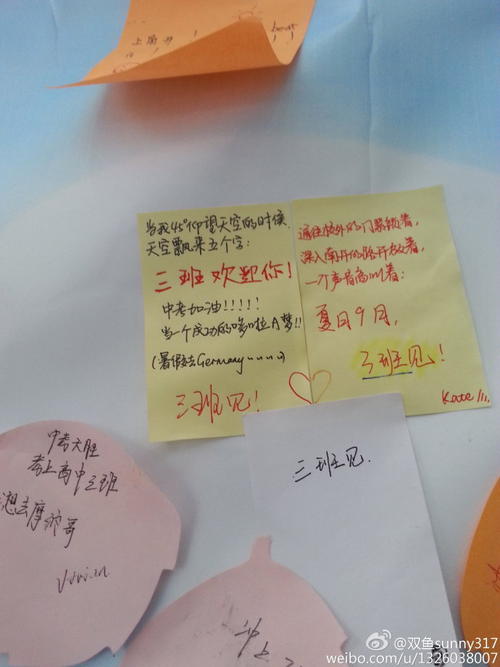 上南开!
best!
当我45°仰望天空的时候,
天空飘来五个字:
三班欢迎你!
中考加油!!!!!
当一个成功的哆啦A梦!!
(暑假去Germany~~~~)
三班见!
通往校外的门紧锁着,
深入南开的路开放着,
一个声音高叫着:
夏日9月,
3班见!
Kate
中考大胜
考上高中三班
想去摩纳哥
Vivian
三班见.
@双鱼sunny317
weibo.com/u/1326038007